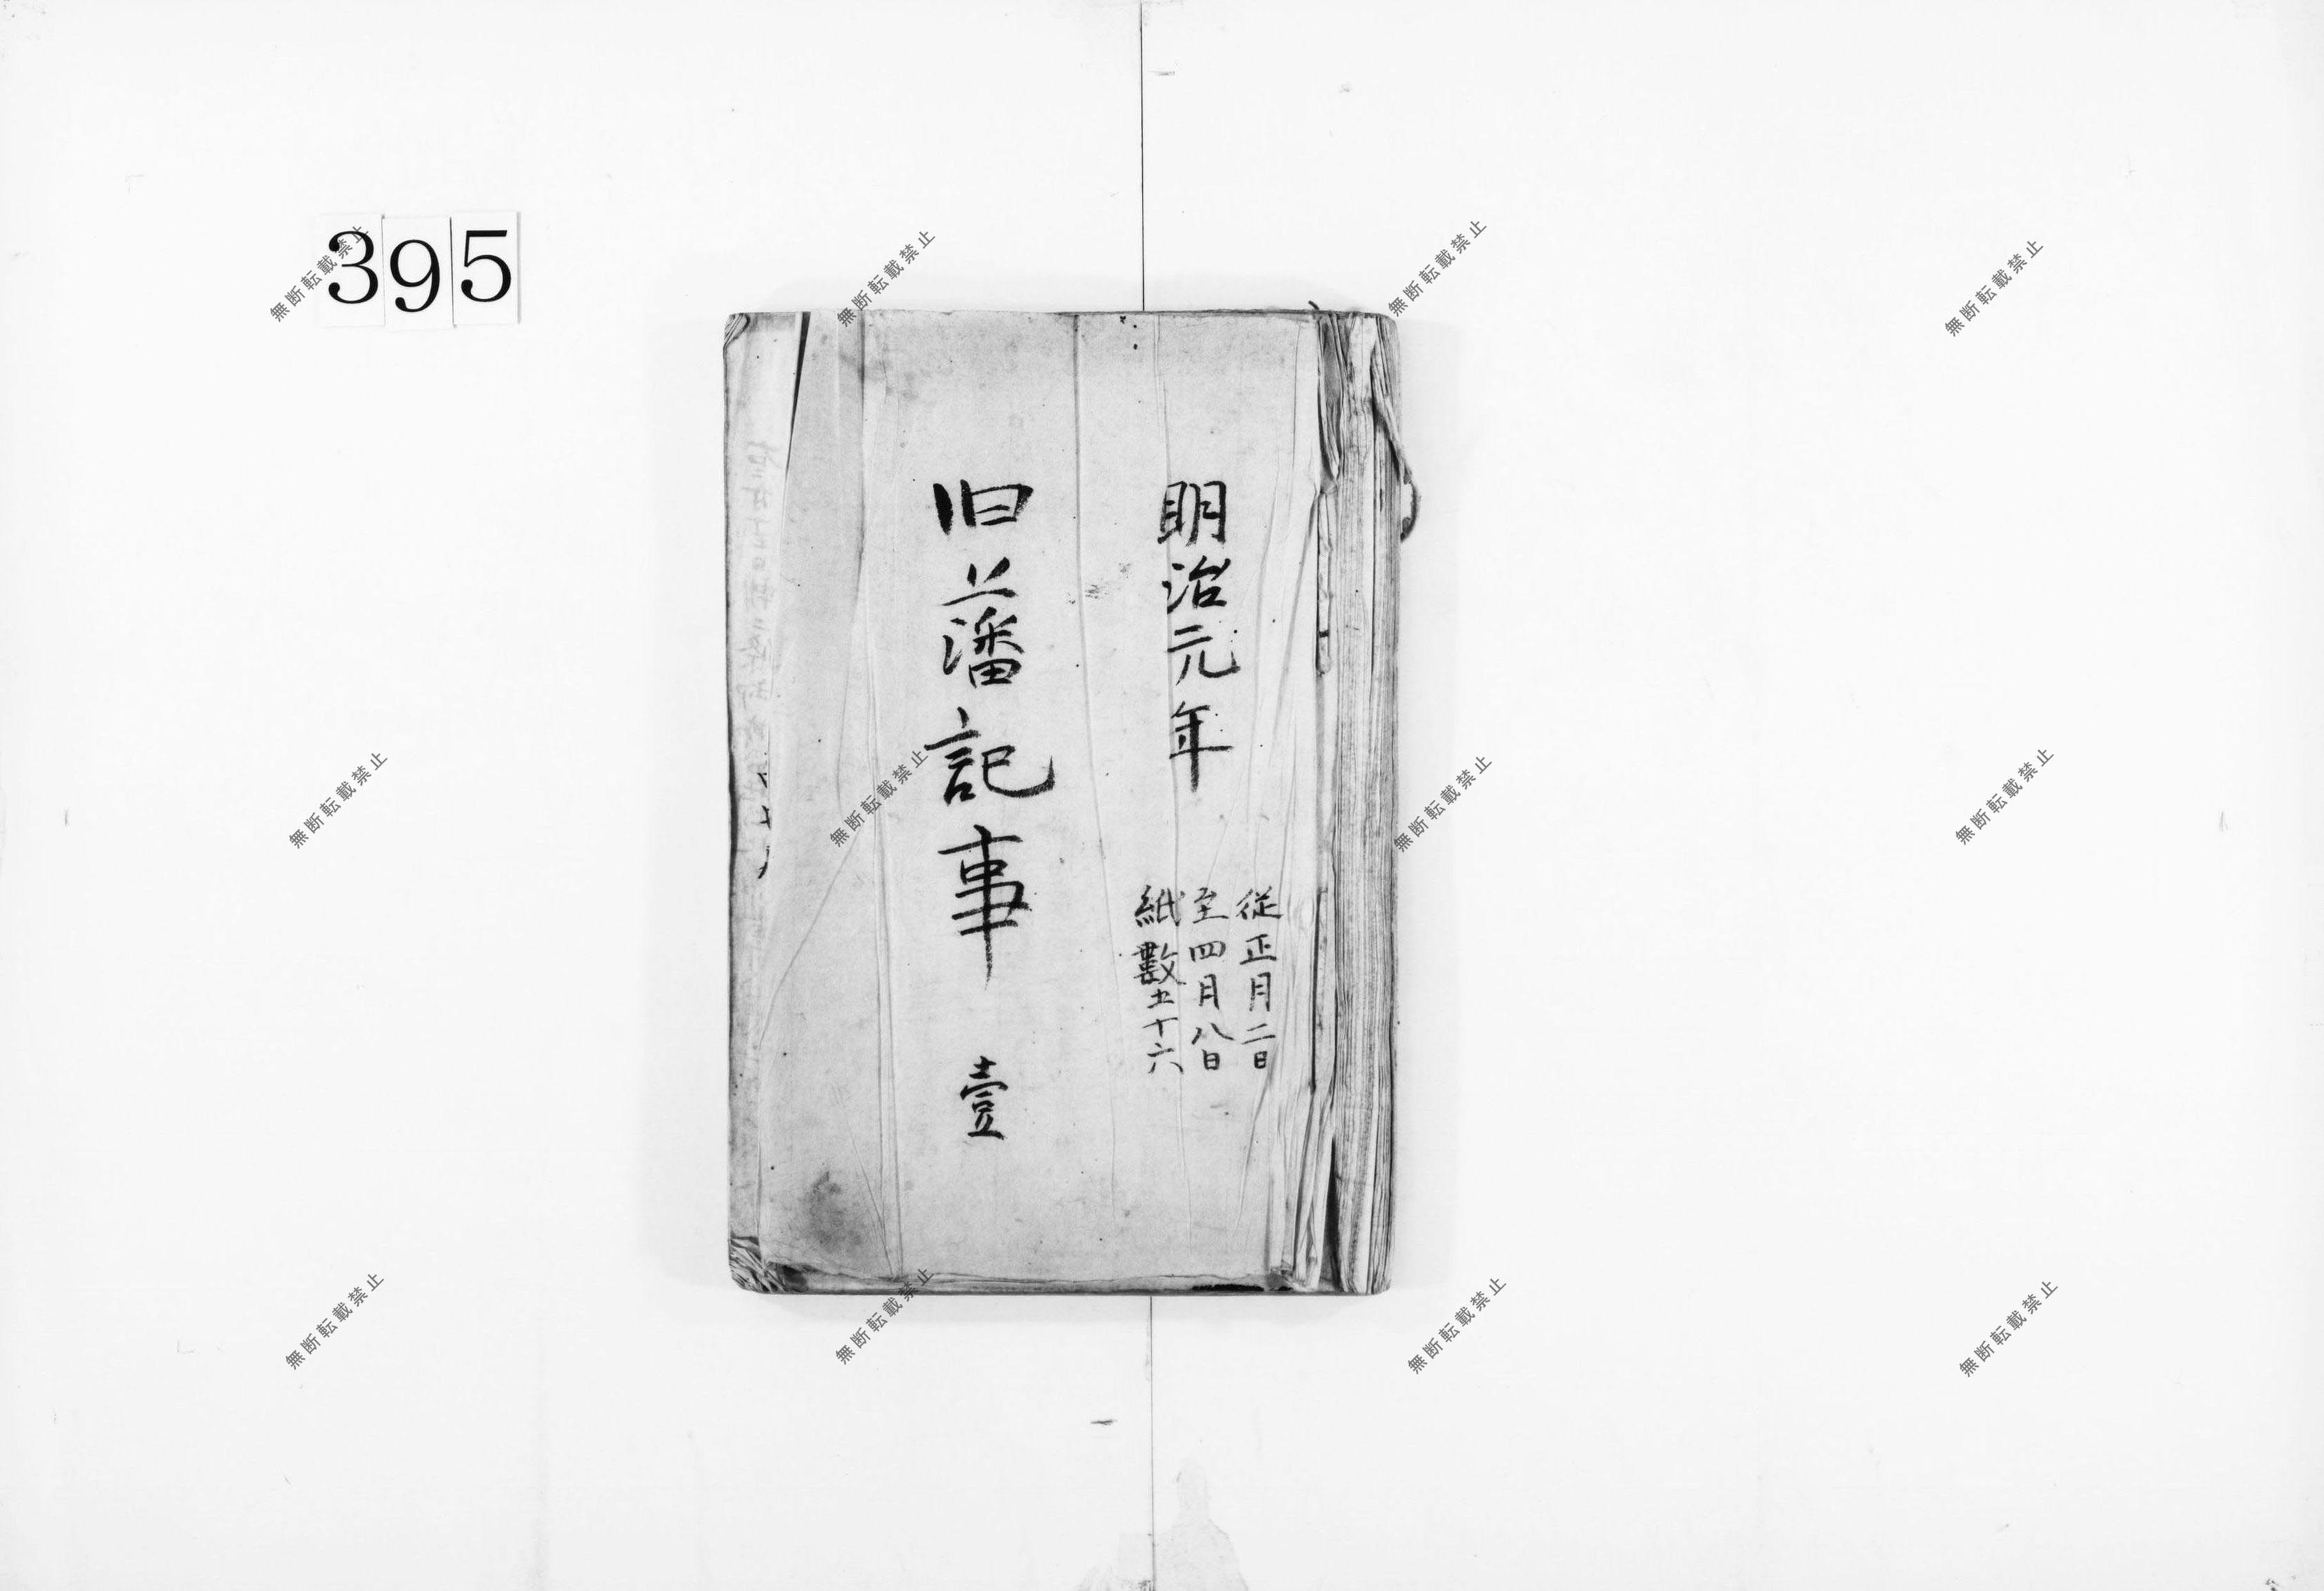 395
明治元年
従正月二日
至四月八日
紙數五十六
旧藩記事 壹
無断転載禁止
無断転載禁止
無断転載禁止
無断転載禁止
無断転載禁止
無断転載禁止
無断転載禁止
無断転載禁止
無断転載禁止
無断転載禁止
無断転載禁止
無断転載禁止